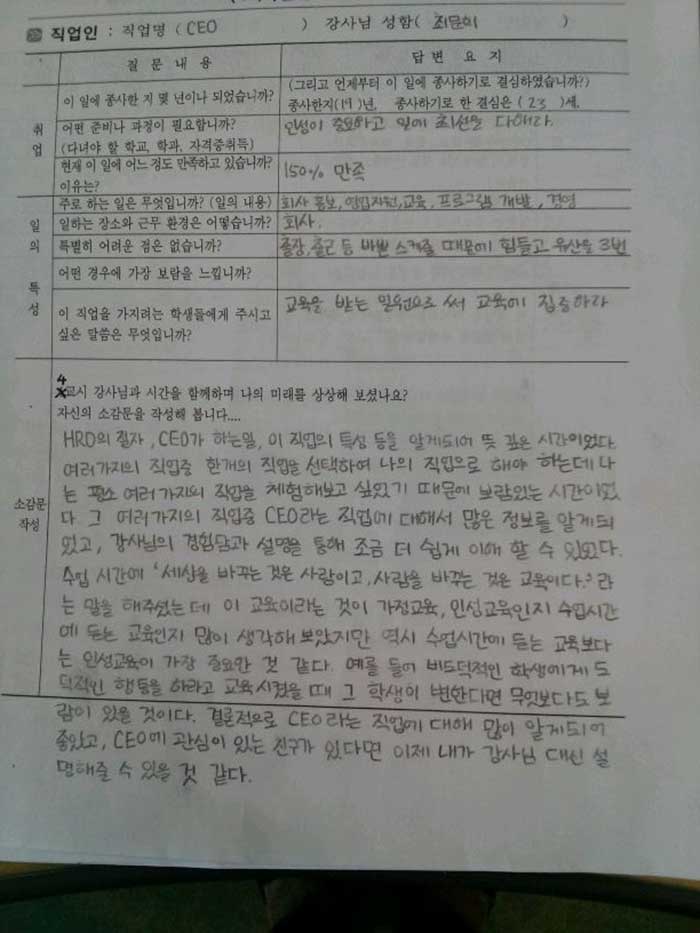 직업인 : 직업명 (CEO ) 강사님 성함( 최윤희 )
질 문 내 용
답 변 요 지
취업
이 일에 종사한 지 몇 년이나 되었습니까?
(그리고 언제부터 이 일에 종사하기로 결심하였습니까?)
종사한지(19)년, 종사하기로 한 결심은 ( 23 )세.
어떤 준비나 과정이 필요합니까?
(다녀야 할 학교, 학과, 자격증취득)
인성이 중요하고 일에 최선을 다해라.
현재 이 일에 어느 정도 만족하고 있습니까?
이유는?
150% 만족
일의 특성
주로 하는 일은 무엇입니까? (일의 내용)
회사 홍보, 영업지원, 교육, 프로그램 개발, 경영
일하는 장소와 근무 환경은 어떻습니까?
회사.
특별히 어려운 점은 없습니까?
출장, 출근 등 바쁜 스케줄 때문에 힘들고 유산을 3번
어떤 경우에 가장 보람을 느낍니까?
이 직업을 가지려는 학생들에게 주시고
싶은 말씀은 무엇입니까?
교육을 받는 일원으로써 교육에 집중하라
소감문
작성
4
교시 강사님과 시간을 함께하며 나의 미래를 상상해 보셨나요?
자신의 소감문을 작성해 봅니다....
HRD의 질자, CEO가 하는일, 이 직업의 특성 등을 알게되어 뜻 깊은 시간이었다
여러가지의 직업중 한개의 직업을 선택하여 나의 직업으로 해야 하는데 나
는 평소 여러가지의 직업을 체험해보고 싶었기 때문에 보람있는 시간이었
다. 그 여러가지의 직업중 CEO라는 직업에 대해서 많은 정보를 알게되
었고, 강사님의 경험담과 설명을 통해 조금 더 쉽게 이해 할 수 있었다.
수업 시간에 '세상을 바꾸는 것은 사람이고, 사람을 바꾸는 것은 교육이다.' 라
는 말을 해주셨는데 이 교육이라는 것이 가정교육, 인성교육인지 수업시간
에 듣는 교육인지 많이 생각해 보았지만 역시 수업시간에 듣는 교육보다
는 인성교육이 가장 중요한 것 같다. 예를 들어 비도덕적인 학생에게 도
덕적인 행동을 하라고 교육시켰을 때 그 학생이 변한다면 무엇보다도 보
람이 있을 것이다. 결론적으로 CEO라는 직업에 대해 많이 알게되어
좋았고, CEO에 관심이 있는 친구가 있다면 이제 내가 강사님 대신 설
명해줄 수 있을 것 같다.